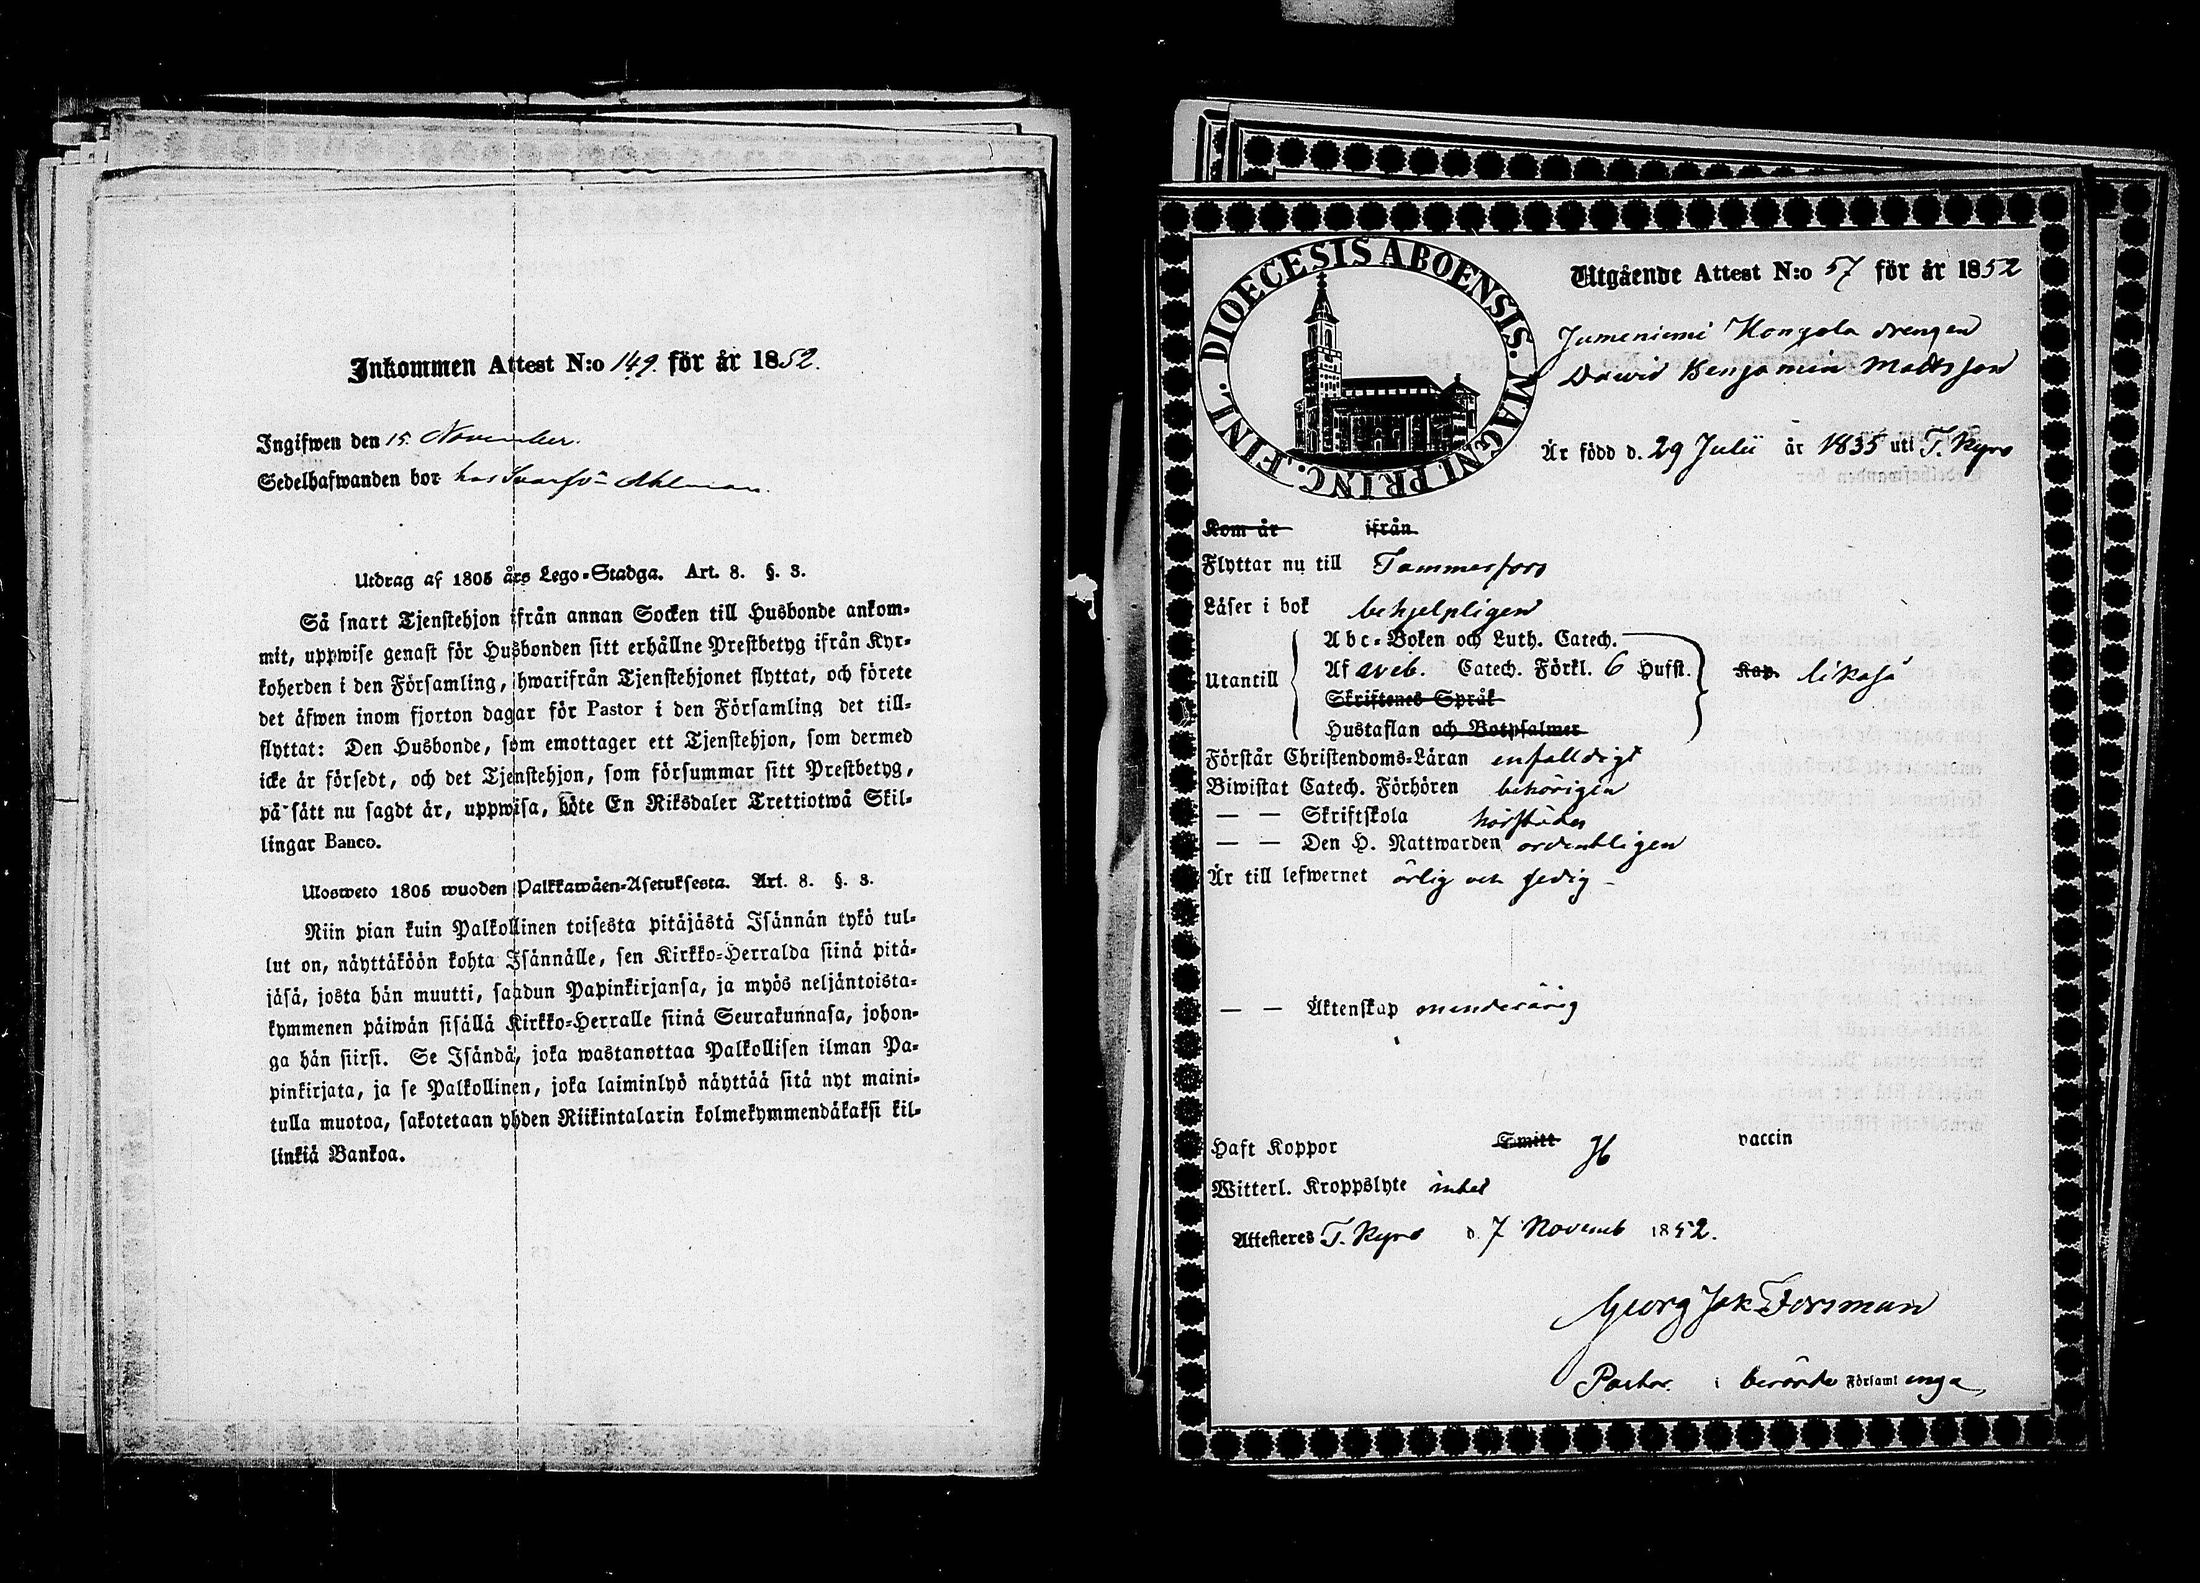 Inkommen Attest N:o 149. för år 1852.
Ingifwen den 15. November.
Sedelhafwanden bor hos Ahlman.
Utdrag af 1805 års Lego-Stadga. Art. 8. §. 3.
Så snart Tjenstehjon ifrån annan Socken till Husbonde ankom-
mit, uppwise genast för Husbonden sitt erhållne Prestbetyg ifrån Kyr-
koherden i den Församling, hwarifrån Tjenstehjonet flyttat, och förete
det äfwen inom fjorton dagar för Pastor i den Församling det till-
flyttat: Den Husbonde, som emottager ett Tjenstehjon, som dermed
icke är försedt, och det Tjenstehjon, som försummar sitt Prestbetyg,
på sätt nu sagdt är, uppwisa, böte En Riksdaler Trettiotwå Skil-
lingar Banco.
Ulosweto 1805 wuoden Palkkawäen-Asetuksesta. Art. 8. §. 3.
Niin pian kuin Palkollinen toisesta pitäjästä Isännän tykö tul-
lut on, näyttäköön kohta Isännälle, sen Kirkko-Herralda siinä pitä-
jäsä, josta hän muutti, saadun Papinkirjansa, ja myös neljäntoista-
kymmenen päiwän sisällä Kirkko-Herralle siinä Seurakunnasa, johon-
ga hän siirsi. Se Isändä, joka wastanottaa Palkollisen ilman Pa-
pinkirjata, ja se Palkollinen, joka laiminlyö näyttää sitä nyt maini-
tulla muotoa, sakotetaan yhden Riikintalarin kolmekymmendäkaksi kil-
linkiä Bankoa.
DIOECESIS ABOENSIS. MAGNI PRINC. FINL.
Utgående Attest N:o 57 för år 1852
Jumeniemi Kongola drengen
David Benjamin Mattsson
Är född d. 29 Julii år 1835 uti T. Kyro
Kom år ifrån
Flyttar nu till Tammerfors
Läser i bok behjelpligen
Utantill
Abc-Boken och Luth. Catech.
Af aveb. Catech. Förkl. 6 Hufst. Kap. likaså
Skriftenes Språk
Hustaflan och Botpsalmer
Förstår Christendoms-Läran enfalldigt
Biwistat Catech. Förhören behörigen
— — Skriftskola
— — Den H. Nattwarden ordentligen
Är till lefwernet ärlig och sedig –
— — Äktenskap minderårig
Haft Koppor Smitt H vaccin
Witterl. Kroppslyte intet
Attesteres T. Kyro d. 7 Novemb 1852.
Georg Jak Forsman
Pastor. i berörde Församl inga